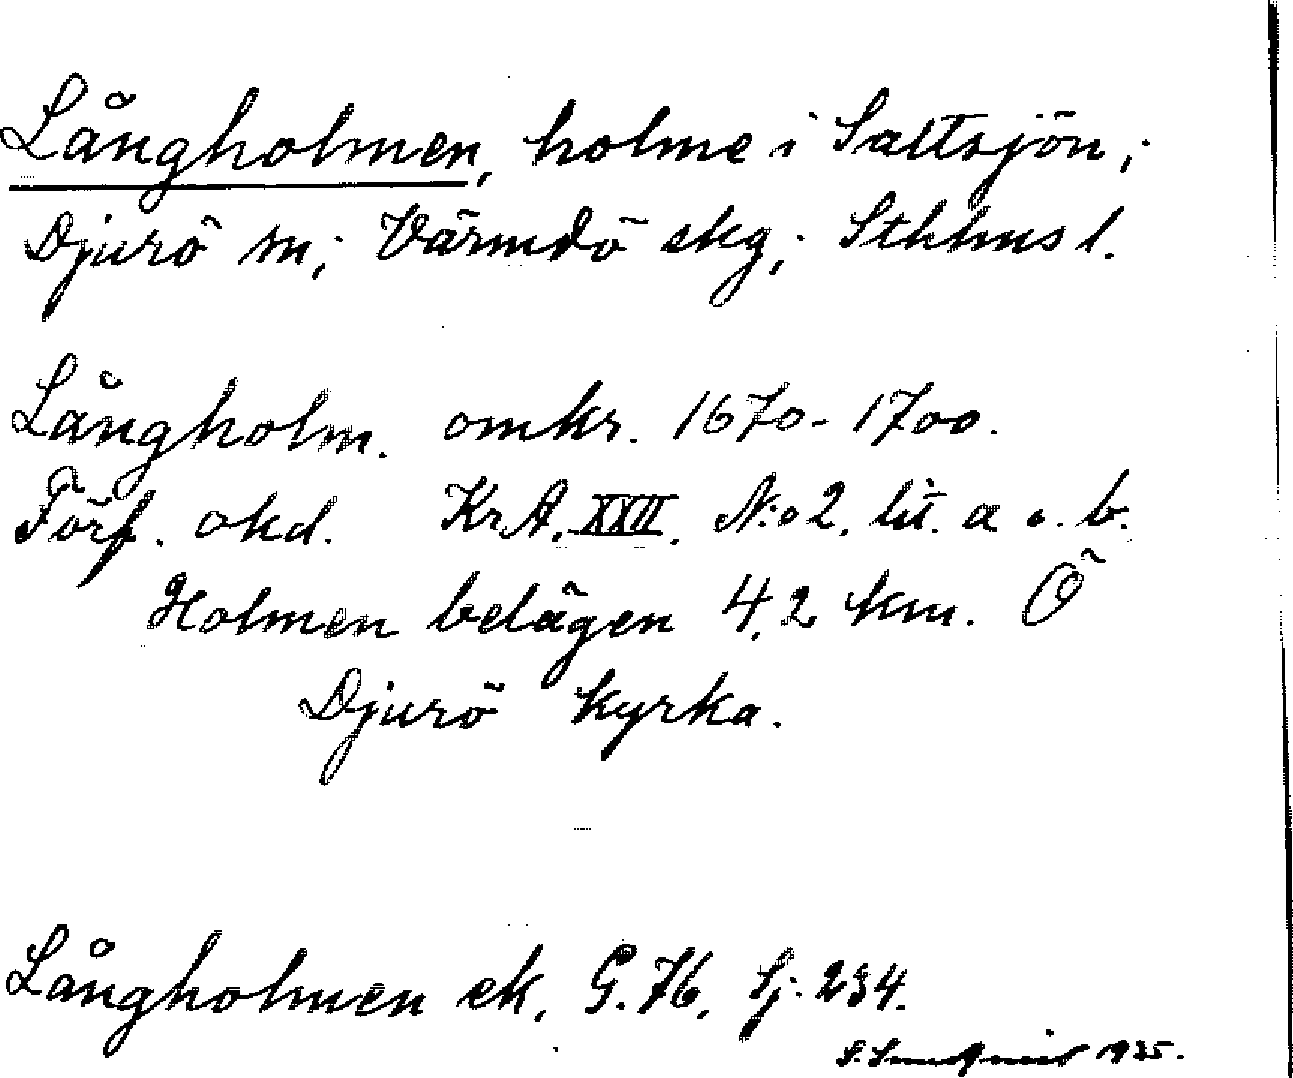 Långholmen, holme i Saltsjön;
Djurö sn; Värmdö skg; Sthlms l.
Långholm. omkr. 1670-1700.
Förf. okd. KrA. XXII. N:o 2. lit. a o. b.
Holmen belägen 4,2 km. Ö
Djurö kyrka.
Långholmen ek. G. 76. Sj. 234.
1935.